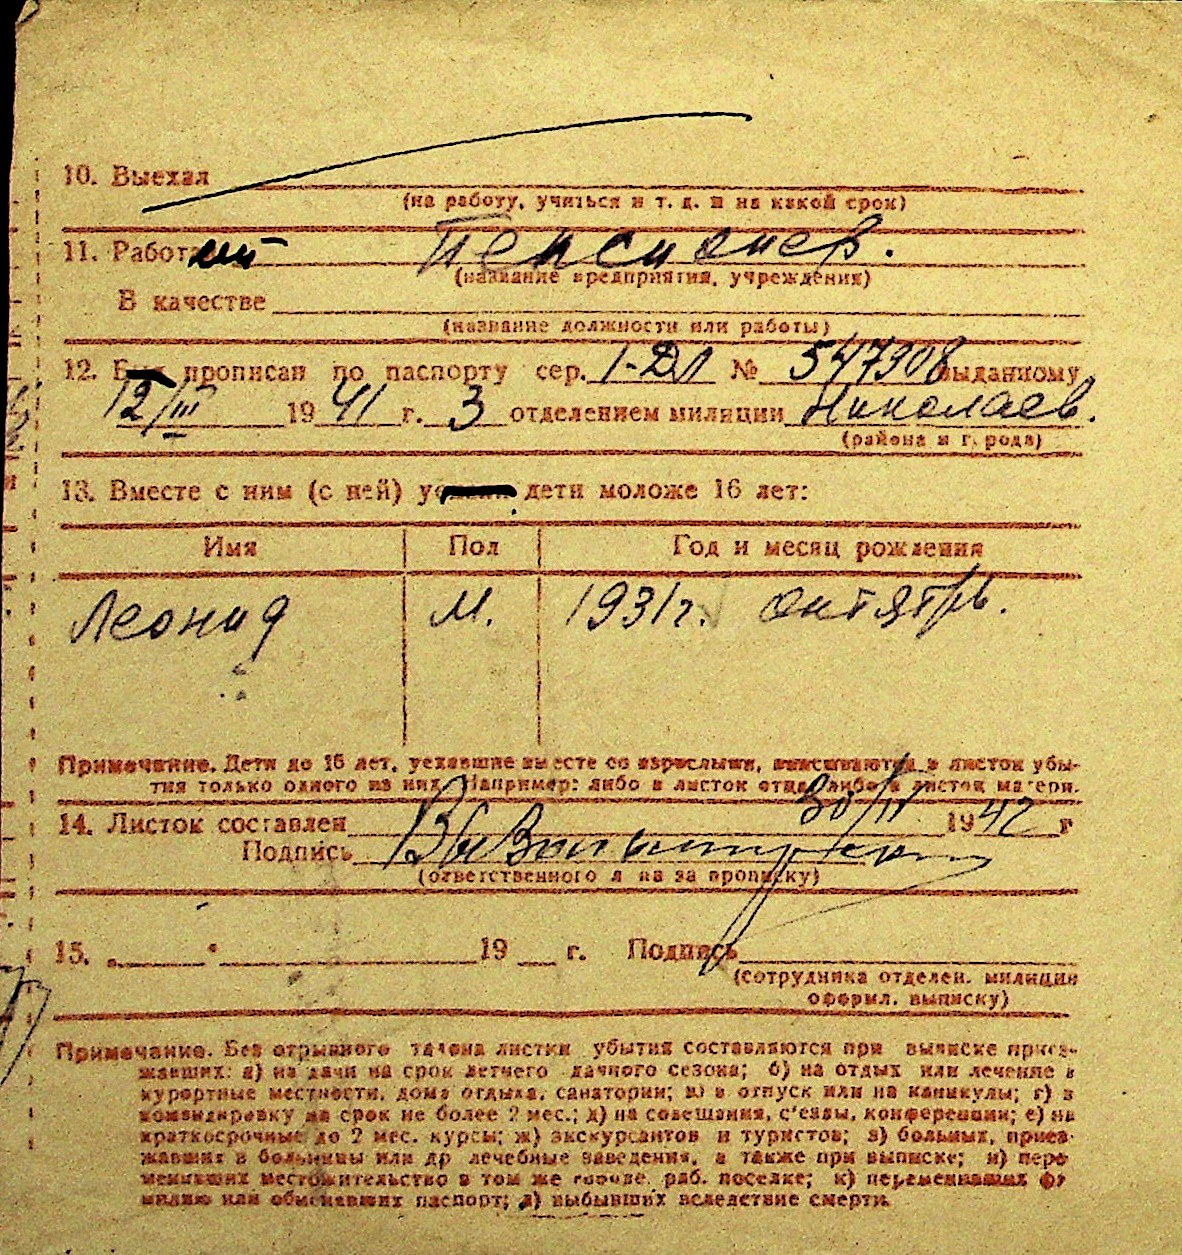 10. Выехал
(на работу, учиться и т. д. и на какой срок)
11. Работает Пенсионер.
(название предприятия, учреждения)
В качестве
(название должности или работы)
12. Был прописан по паспорту сер. 1-ДЛ № 547908 выданному
12/III 1941 г. 3 отделением милиции Николаев.
(района и города)
13. Вместе с ним (с ней) дети моложе 16 лет:
Имя Пол Год и месяц рождения
Леонид М. 1931г. октябрь.
Примечание. Дети до 16 лет, уехавшие вместе со взрослыми, вписываются в листок убы-
тия только одного из них. Например: либо в листок отца, либо в листок матери.
14. Листок составлен 30/ 1942 г
Подпись
(ответственного за прописку)
15. 19 г. Подпись
(сотрудника отделен. милиции
оформл. выписку)
Примечание. Без отрывного талона листки убытия составляются при выписке приез-
жавших: а) на дачи на срок летнего дачного сезона; б) на отдых или лечение в
курортные местности, дома отдыха, санатории; в) в отпуск или на каникулы; г) в
командировку на срок не более 2 мес.; д) на совещания, с'езды, конференции; е) на
краткосрочные до 2 мес. курсы; ж) экскурсантов и туристов; з) больных, приез-
жавших в больницы или др лечебные заведения, а также при выписке; и) пере
менивших местожительство в том же городе, раб. поселке; к) переменивших фа
милию или обменявших паспорт; л) выбывших вследствие смерти.